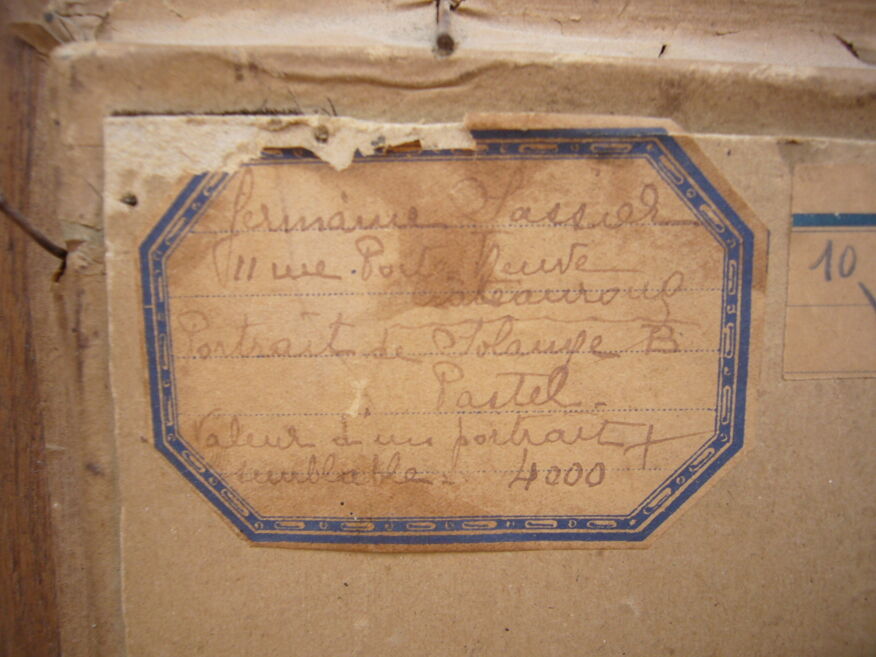 Germaine Tassier
11 rue Porte Neuve
Chateauroux
Portrait de Solange B
Pastel.
Valeur d'un portrait +
semblable. 4000
10